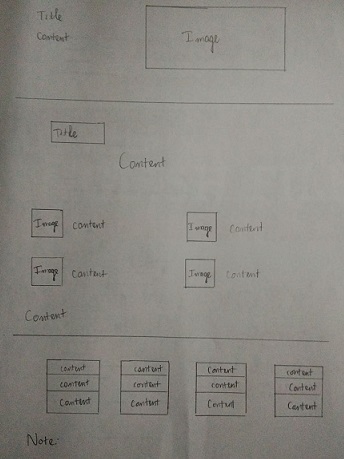 Title
Content
Image
Title
Content
Image Content Image Content
Image Content Image Content
Content
content content Content content
content content content Content
Content Content Content Content
Note: